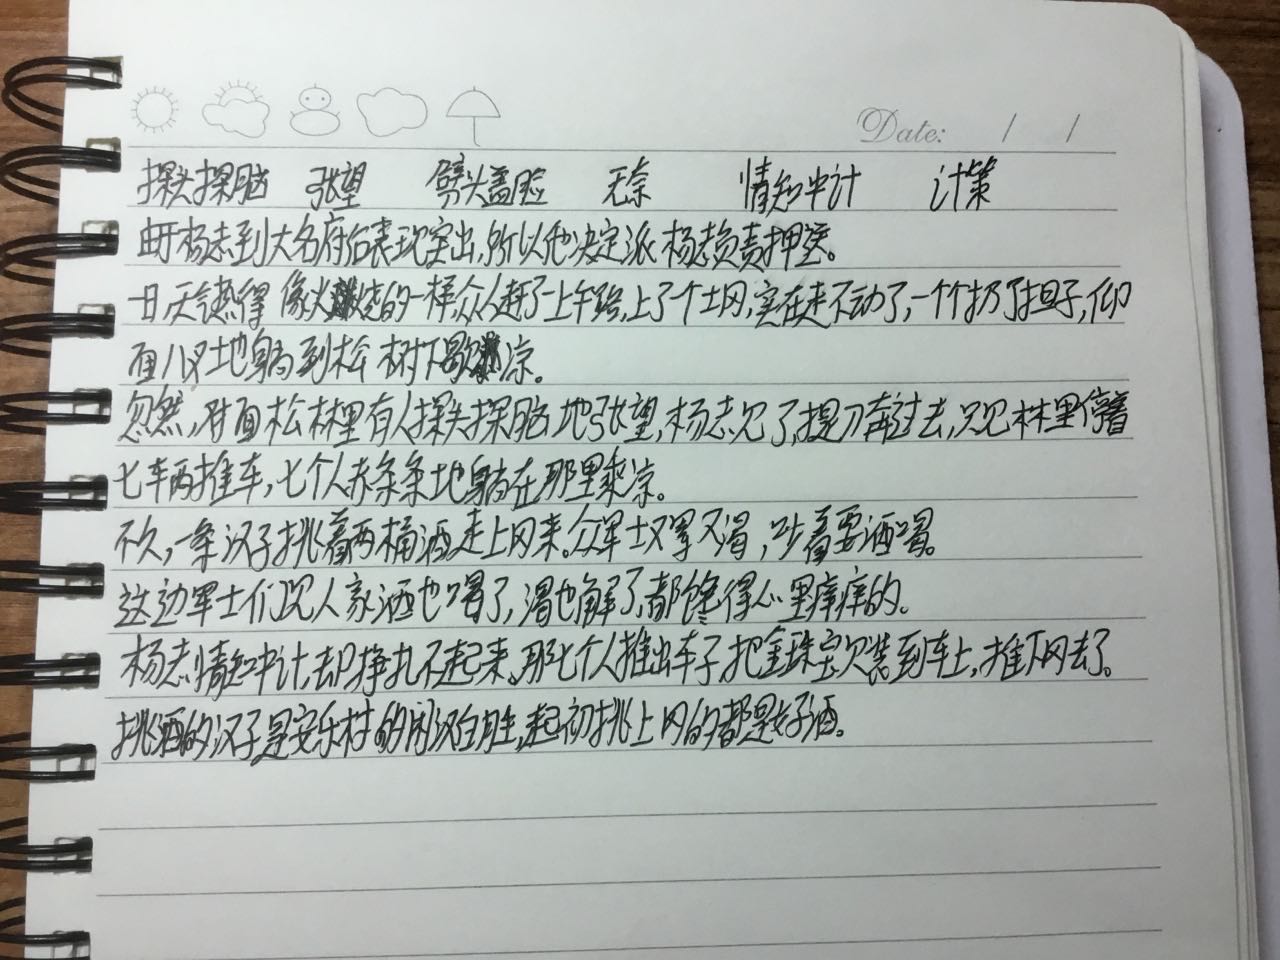 Date: / /
探头探脑 张望 劈头盖脸 无奈 情知中计 计策
由于杨志到大名府后表现突出,所以他决定派杨志负责押送。
一日天气热得像火烧的一样,众人赶了一上午路,上了个土冈,实在走不动了,一个个扔了担子,仰
面八叉地躺到松树下歇凉。
忽然,对面松林里有人探头探脑地张望,杨志见了,提刀奔过去,只见林里停着
七车两推车,七个人赤条条地躺在那里乘凉。
不久,一条汉子挑着两桶酒走上冈来。众军士又累又渴,吵着要酒喝。
这边军士们见人家酒也喝了,渴也解了,都馋得心里痒痒的。
杨志情知中计,却挣扎不起来。那七个人推出车子,把金珠宝贝装到车上,推下冈去了。
挑酒的汉子是安乐村的闲汉白胜,起初挑上冈的都是好酒。